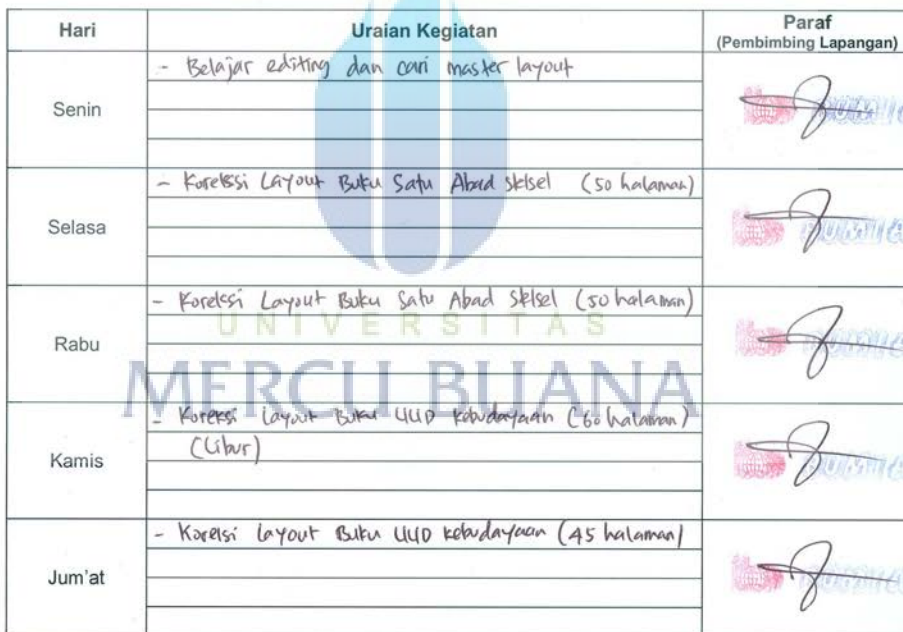 Hari Uraian Kegiatan Paraf
(Pembimbing Lapangan)
Senin
- Belajar editing dan cari master layout
Selasa
- Koreksi Layout Buku Satu Abad Sklsel (50 halaman)
Rabu
- Koreksi Layout Buku Satu Abad Sklsel (50 halaman)
UNIVERSITAS
MERCU BUANA
Kamis
- Koreksi Layout Buku UUD kebudayaan (60 halaman)
(Libur)
Jum'at
- Koreksi Layout Buku UUD kebudayaan (45 halaman)